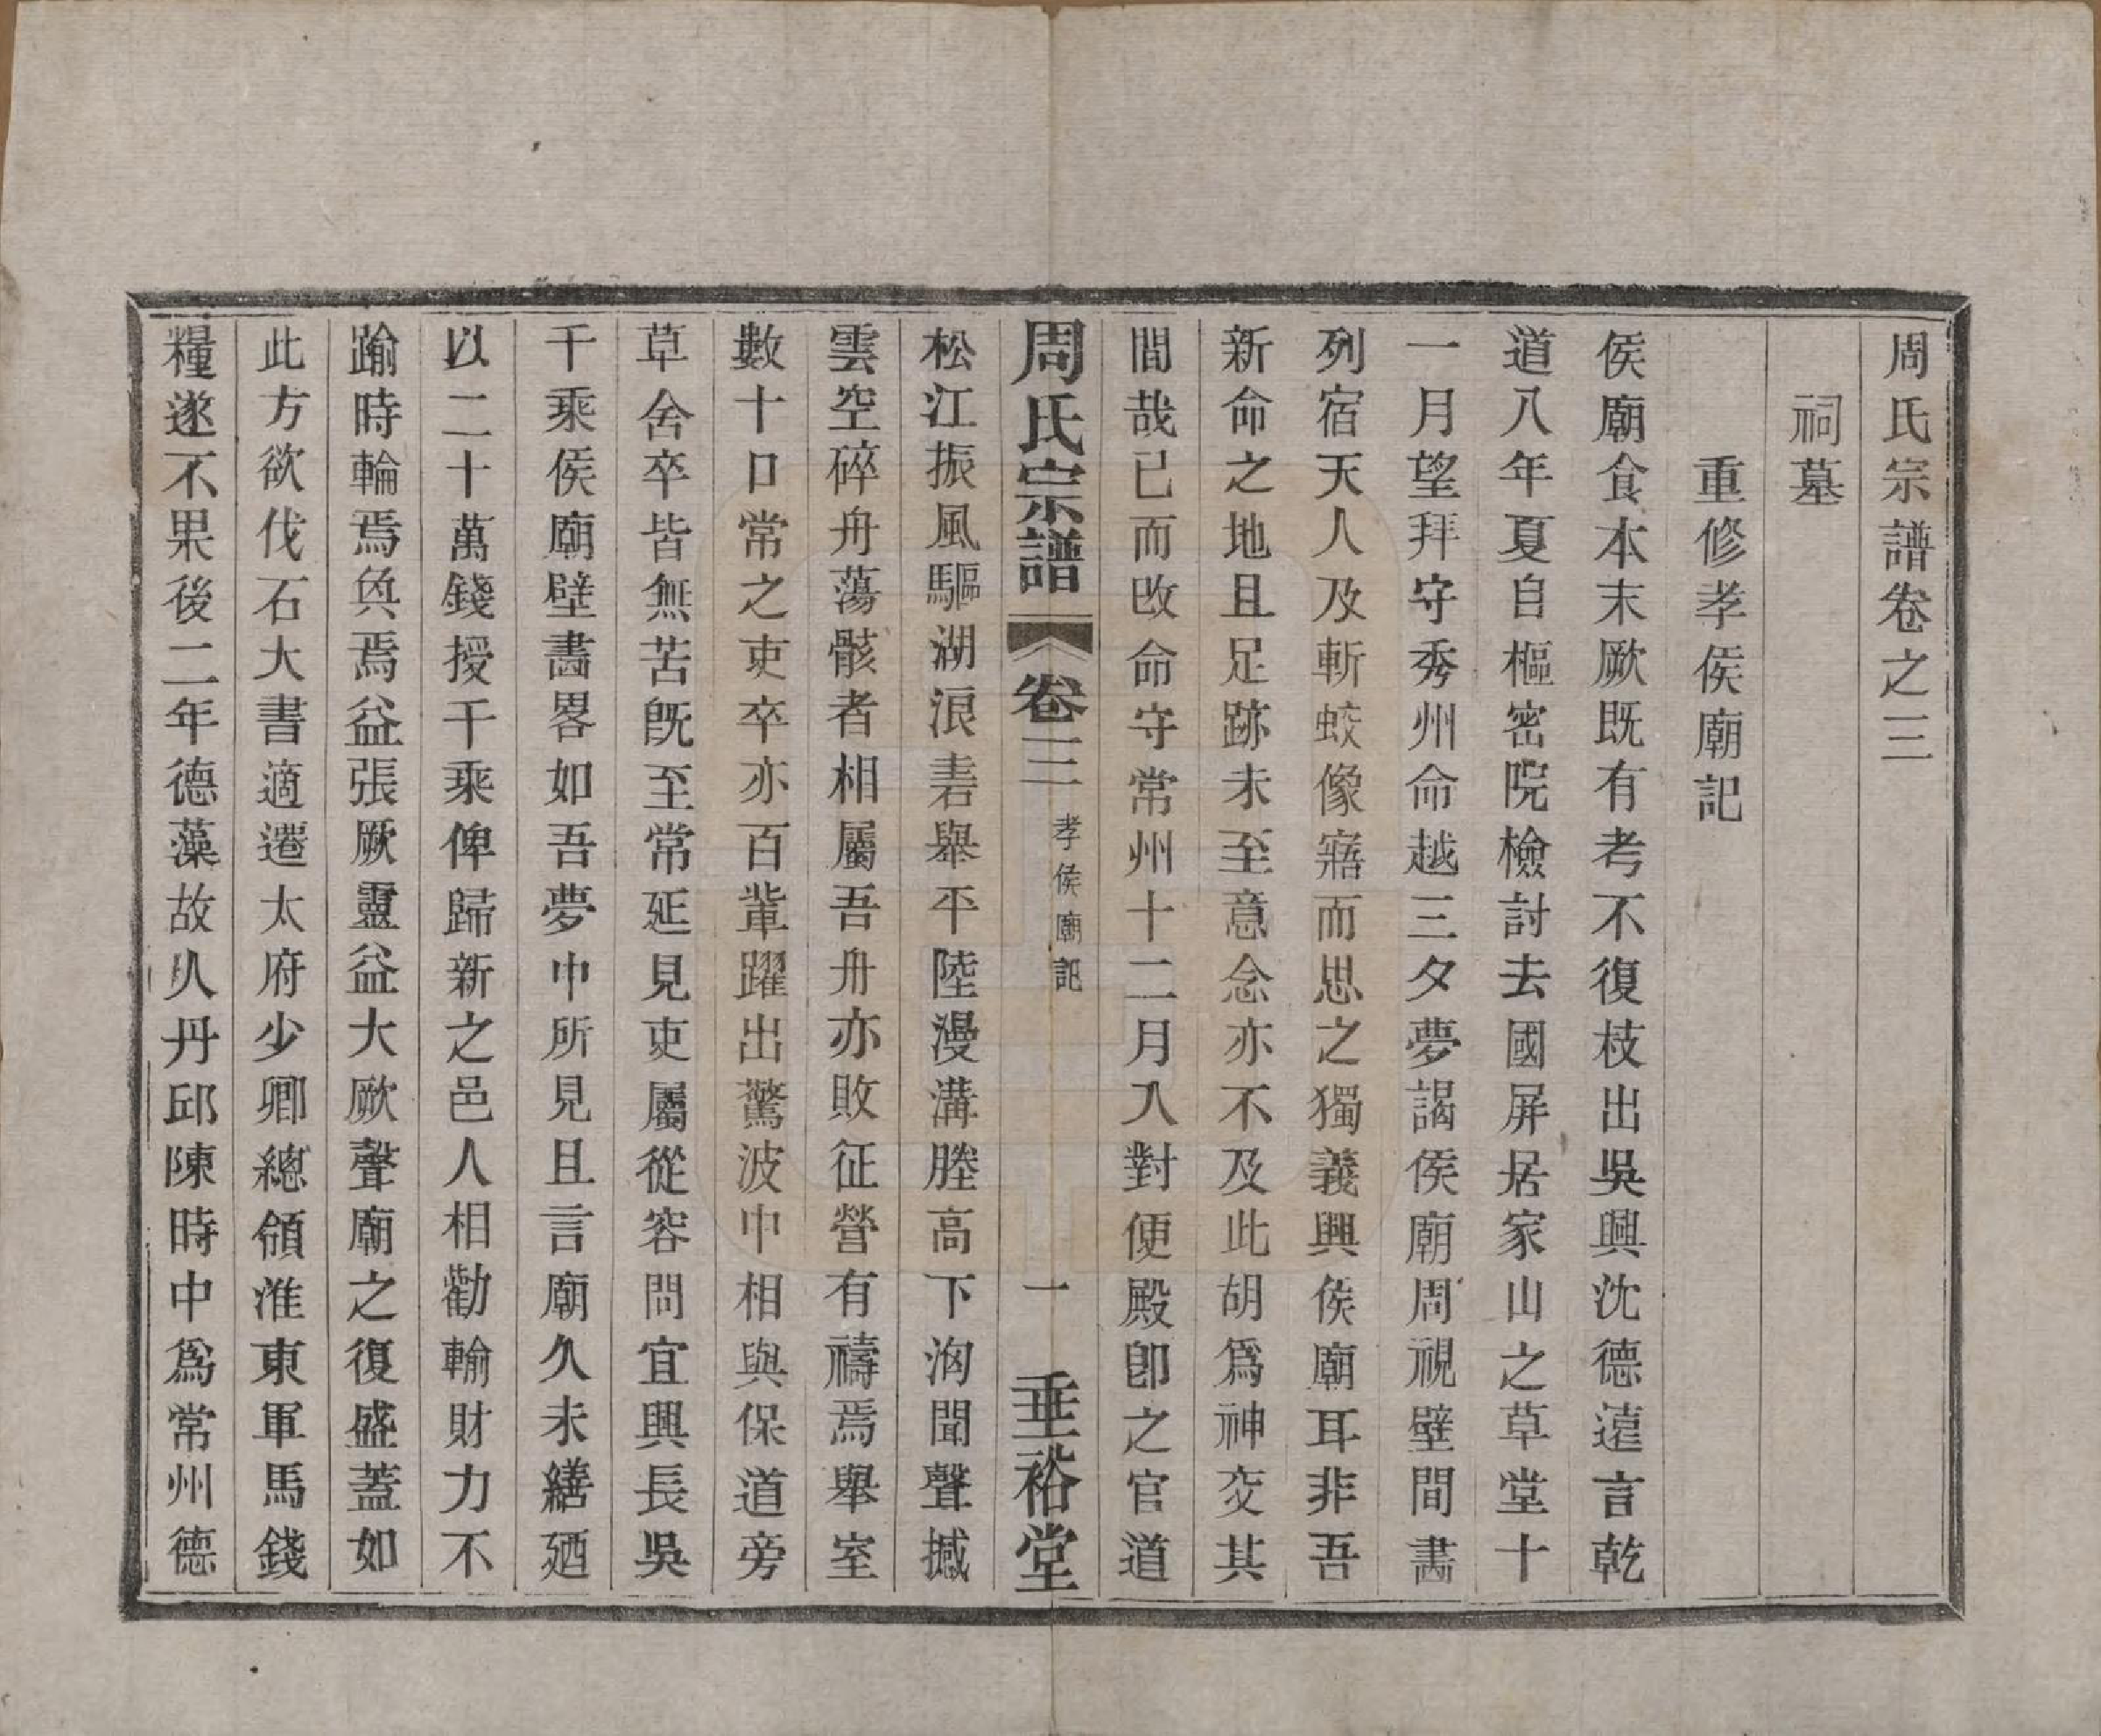 周氏宗譜卷之三
祠墓
重修孝侯廟記
侯廟食本末厥既有考不復枝出吳興沈德遠言乾
道八年夏自樞密院檢討去國屏居家山之草堂十
一月望拜守秀州命越三夕夢謁侯廟周視壁間畵
列宿天人及斬蛟像寤而思之獨義興侯廟耳非吾
新命之地且足跡未至意念亦不及此胡爲神交其
間哉已而改命守常州十二月入對便殿卽之官道
周氏宗譜 卷三 孝侯廟記 一 垂裕堂
松江振風驅湖浪砉舉平陸漫溝塍高下洶聞聲撼
雲空碎舟蕩骸者相屬吾舟亦敗征營有禱焉舉室
數十口常之吏卒亦百輩躍出驚波中相與保道旁
草舍卒皆無苦旣至常延見吏屬從容問宜興長吳
千乘侯廟壁畵畧如吾夢中所見且言廟久未繕廼
以二十萬錢授千乘俾歸新之邑人相勸輸財力不
踰時輪焉奐焉益張厥靈益大厥聲廟之復盛蓋如
此方欲伐石大書適遷太府少卿總領淮東軍馬錢
糧遂不果後二年德藻故人丹邱陳時中爲常州德